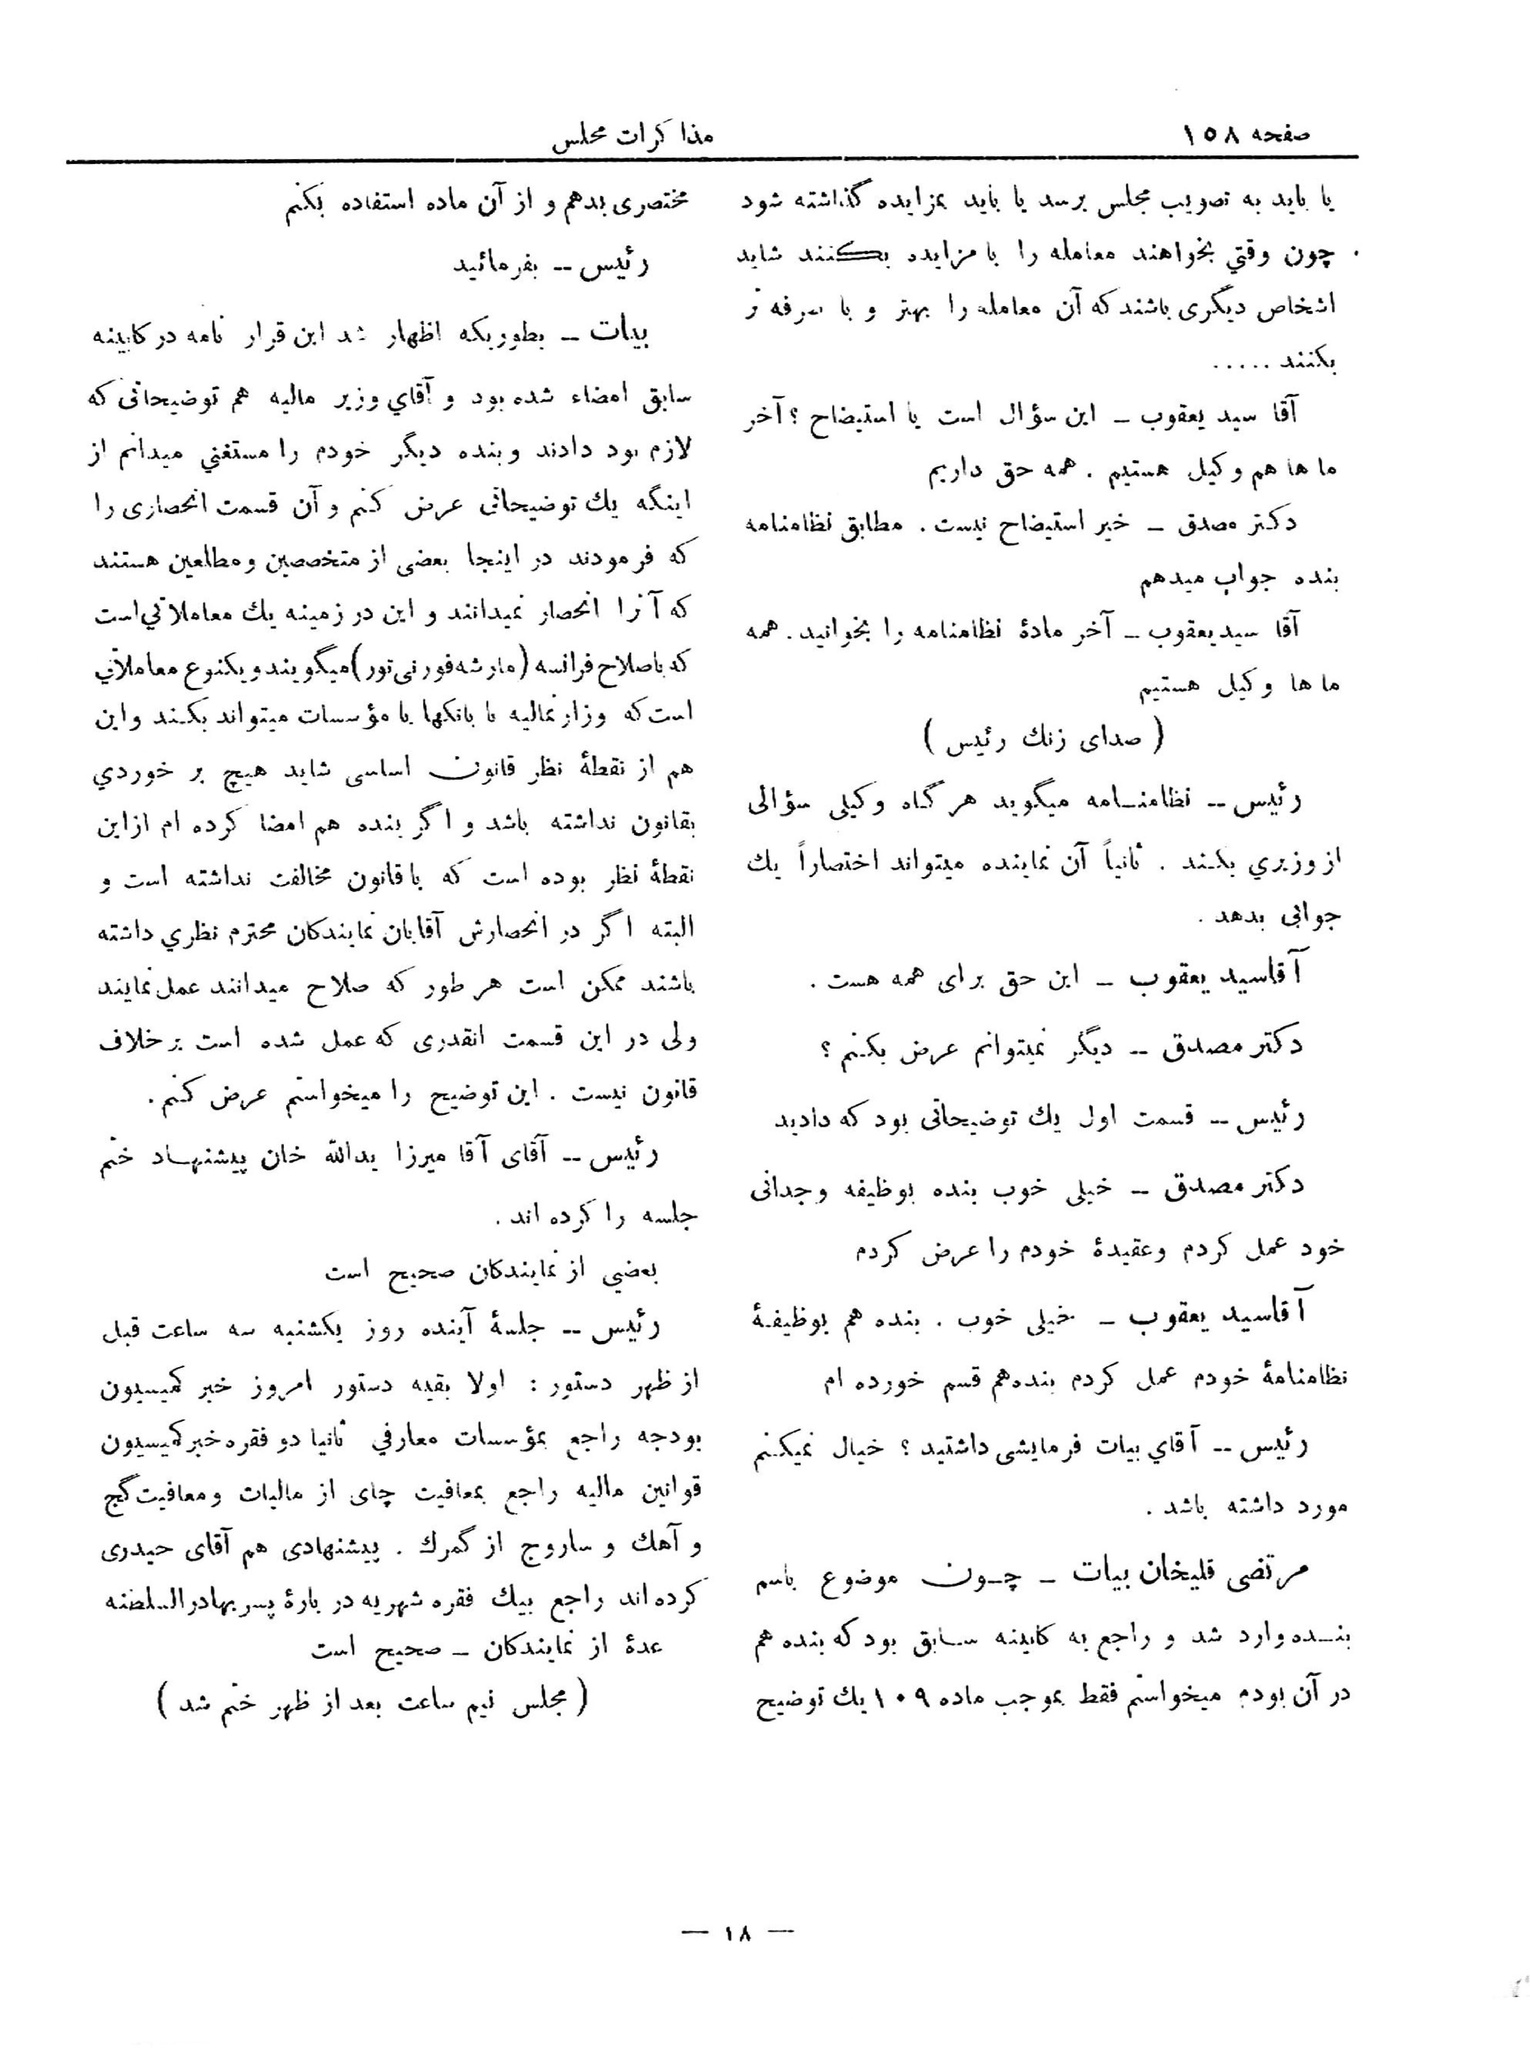 صفحه ۱۵۸
مذاکرات مجلس
یا باید به تصویب مجلس برسد یا باید بمزایده گذاشته شود
چون وقتي بخواهند معامله را با مزایده بکنند شاید
اشخاص دیگری باشند که آن معامله را بهتر و با صرفه تر
بکنند .....
آقا سید یعقوب ــ این سؤال است یا استیضاح ؟ آخر
ما ها هم وکیل هستیم . همه حق داریم
دکتر مصدق ــ خیر استیضاح نیست . مطابق نظامنامه
بنده جواب میدهم
آقا سید یعقوب ــ آخر مادهٔ نظامنامه را بخوانید . همه
ما ها وکیل هستیم
( صدای زنك رئیس )
رئیس ــ نظامنـامه میگوید هر گاه وکیلی سؤالی
از وزیري بکند . ثانیاً آن نماینده میتواند اختصاراً یك
جوابی بدهد .
آقاسید یعقوب ــ این حق برای همه هست .
دکتر مصدق ــ دیگر نمیتوانم عرض بکنم ؟
رئیس ــ قسمت اول یك توضیحاتی بود که دادید
دکتر مصدق ــ خیلی خوب بنده بوظیفه وجدانی
خود عمل کردم وعقیدهٔ خودم را عرض کردم
آقاسید یعقوب ــ خیلی خوب . بنده هم بوظیفهٔ
نظامنامهٔ خودم عمل کردم بنده‌هم قسم خورده ام
رئیس ــ آقاي بیات فرمایشی داشتید ؟ خیال نمیکنم
مورد داشته باشد .
مرتضی قلیخان بیات ــ چـون موضوع باسم
بنـده وارد شد و راجع به کابینه سـابق بود که بنده هم
در آن بودم میخواستم فقط بموجب ماده ۱۰۹ یك توضیح
مختصری بدهم و از آن ماده استفاده بکنم
رئیس ــ بفرمائید
بیات ــ بطوریکه اظهار شد این قرار نامه در کابینه
سابق امضاء شده بود و آقاي وزیر مالیه هم توضیحاتی که
لازم بود دادند و بنده دیگر خودم را مستغني میدانم از
اینکه یك توضیحاتی عرض کنم و آن قسمت انحصاری را
که فرمودند در اینجا بعضی از متخصصین و مطلعین هستند
که آنرا انحصار نمیدانند و این در زمینه یك معاملاتي است
که باصلاح فرانسه (مارشه‌فورنی‌تور) میگویند و یکنوع معاملاتي
است که وزارتمالیه با بانکها یا مؤسسات میتواند بکـند واین
هم از نقطهٔ نظر قانون اساسی شاید هیچ بر خوردي
بقانون نداشته باشد و اگر بنده هم امضا کرده ام ازاین
نقطهٔ نظر بوده است که با قانون مخالفت نداشته است و
البته اگر در انحصارش آقایان نمایندکان محترم نظري داشته
باشند ممکن است هر طور که صلاح میدانند عمل نمایند
ولی در این قسمت انقدری که عمل شده است بر خلاف
قانون نیست . این توضیح را میخواستم عرض کنم .
رئیس ــ آقای آقا میرزا یدالله خان پیشنهـاد ختم
جلسه را کرده اند .
بعضي از نمایندکان صحیح است
رئیس ــ جلسهٔ آینده روز یکشنبه سه ساعت قبل
از ظهر دستور : اولا بقیه دستور امروز خبر کمیسیون
بودجه راجع بمؤسسات معارفي ثانیا دو فقره خبر کمیسیون
قوانین مالیه راجع بمعافیت چای از مالیات و معافیت گچ
و آهك و ساروج از گمرك . پیشنهادی هم آقای حیدری
کرده اند راجع بیك فقره شهریه در بارهٔ پسر بهادرالسلطنه
عدهٔ از نمایندکان ــ صحیح است
( مجلس نیم ساعت بعد از ظهر ختم شد )
— ۱۸ —